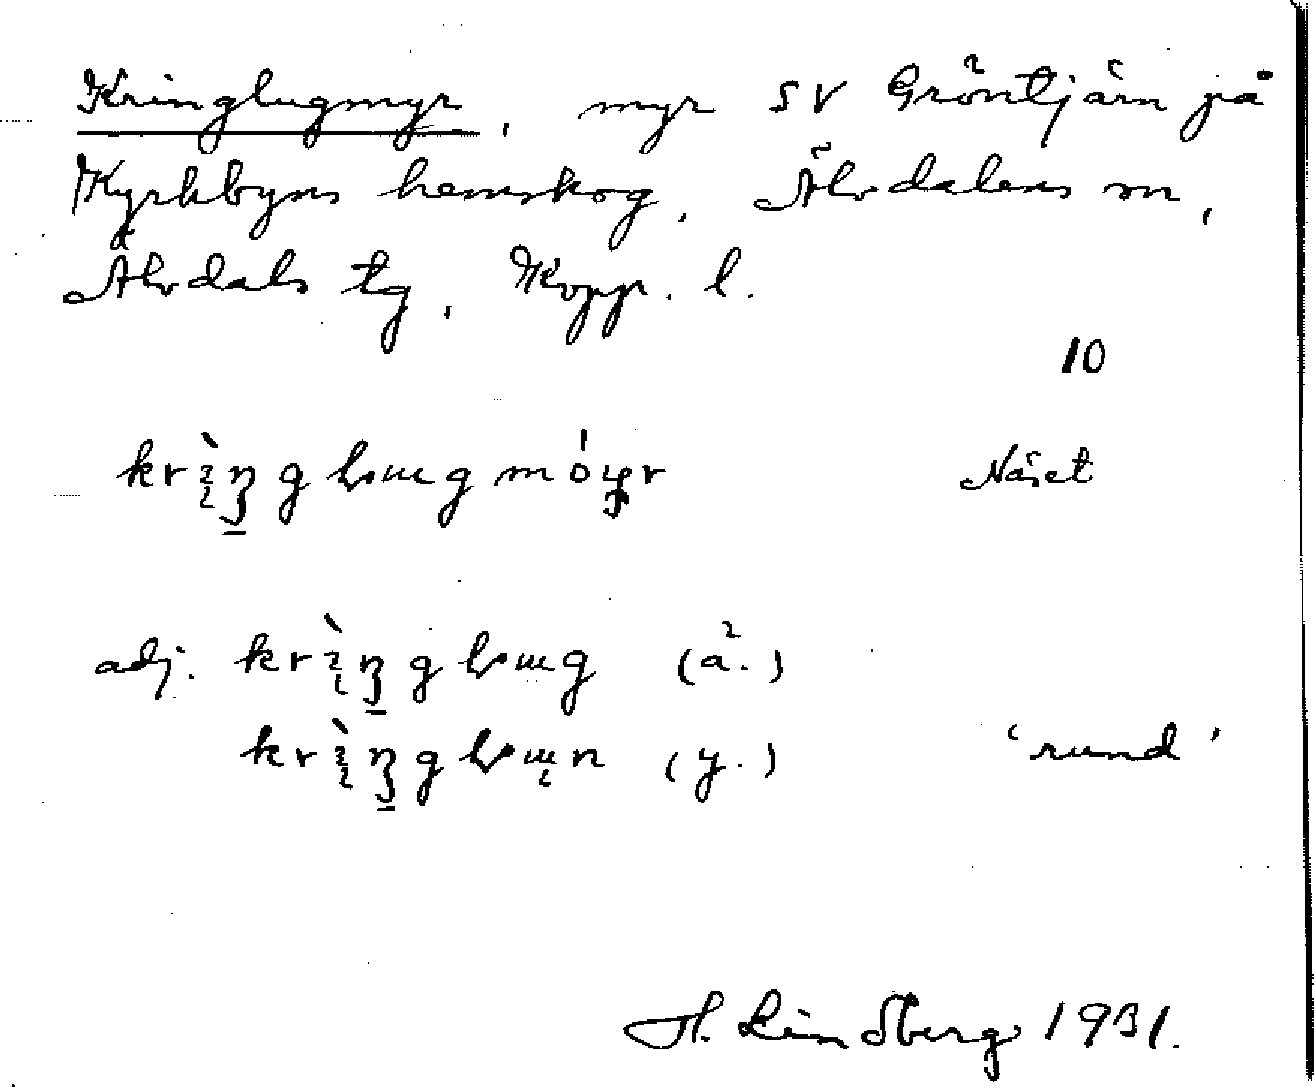 Kringlugmyr, myr SV Gröntjärn på
Kyrkbyns hemskog, Älvdalens sn,
Älvdals tg, Kopp. l.
10
Näset
adj. (ä.)
(y.) 'rund'
H. Lindberg 1931.